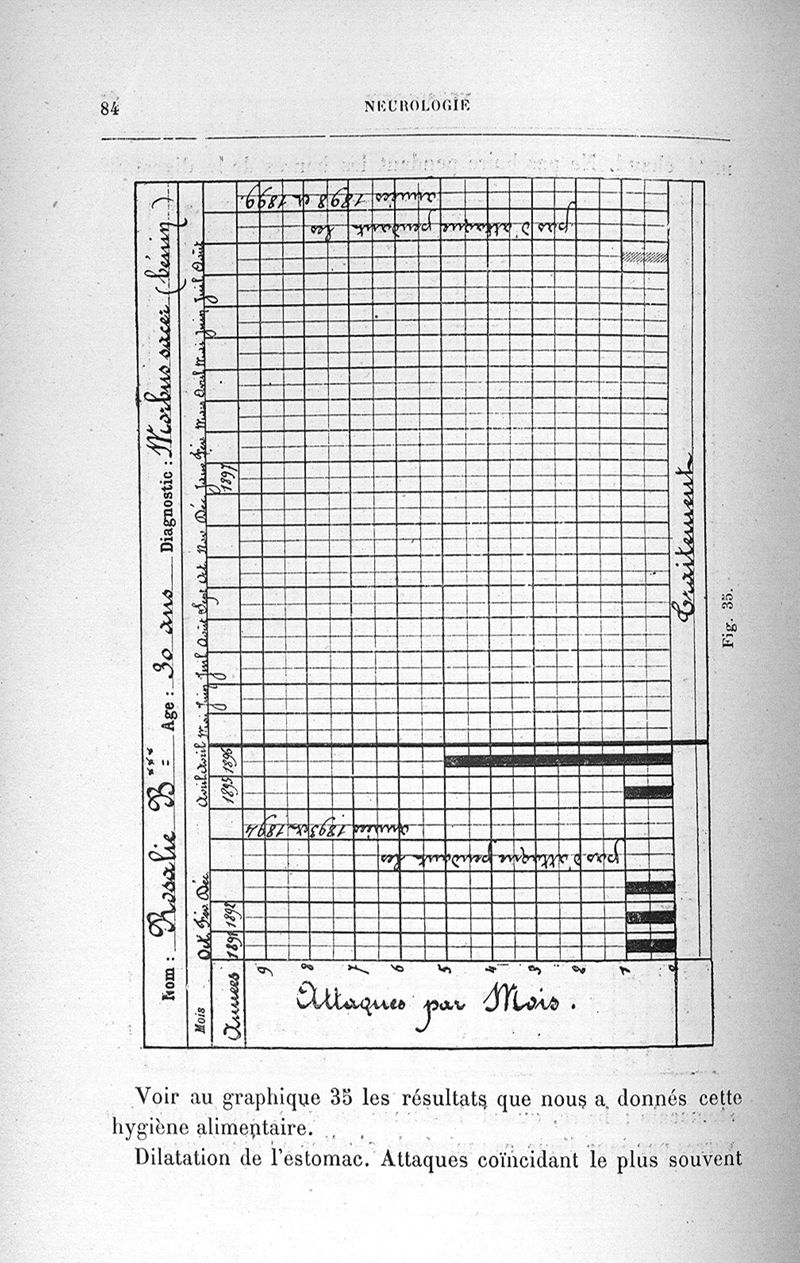 84
NEUROLOGIE
Nom : Rosalie B*** = Age : 30 ans Diagnostic : Morbus sacer (bénin)
Mois Oct. Fév Déc. Avril Avril Mai Juin Juil Août Sept Oct. Nov Déc Janv Fév Mars Avril Mai Juin Juil Août
Années 1891 1892 1895 1896 1897
9
8
7
6
5
4
3
2
1
0
Attaques par Mois.
pas d'attaque pendant les
années 1893 et 1894
pas d'attaque pendant les
années 1898 et 1899
Traitement
Fig. 35.
Voir au graphique 35 les résultats que nous a donnés cette
hygiène alimentaire.
Dilatation de l'estomac. Attaques coïncidant le plus souvent